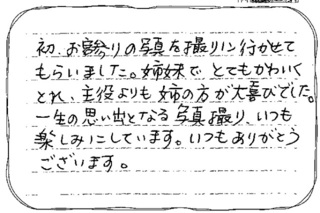 初、お宮参りの写真を撮りに行かせて
もらいました。姉妹で とてもかわいく
とれ、主役よりも 姉の方が大喜びでした。
一生の思い出となる 写真撮り、いつも
楽しみにしています。いつもありがとう
ございます。